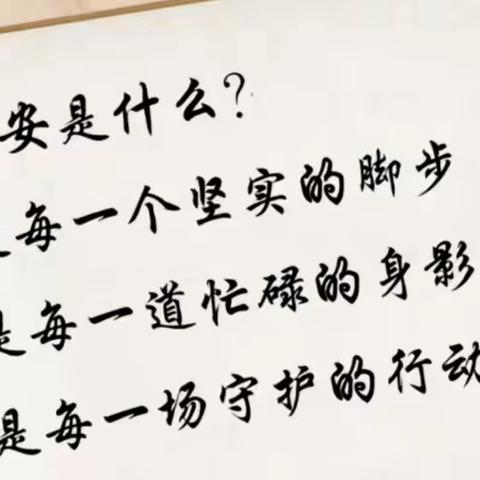 安是什么?
是每一个坚实的脚步
是每一道忙碌的身影
是每一场守护的行动